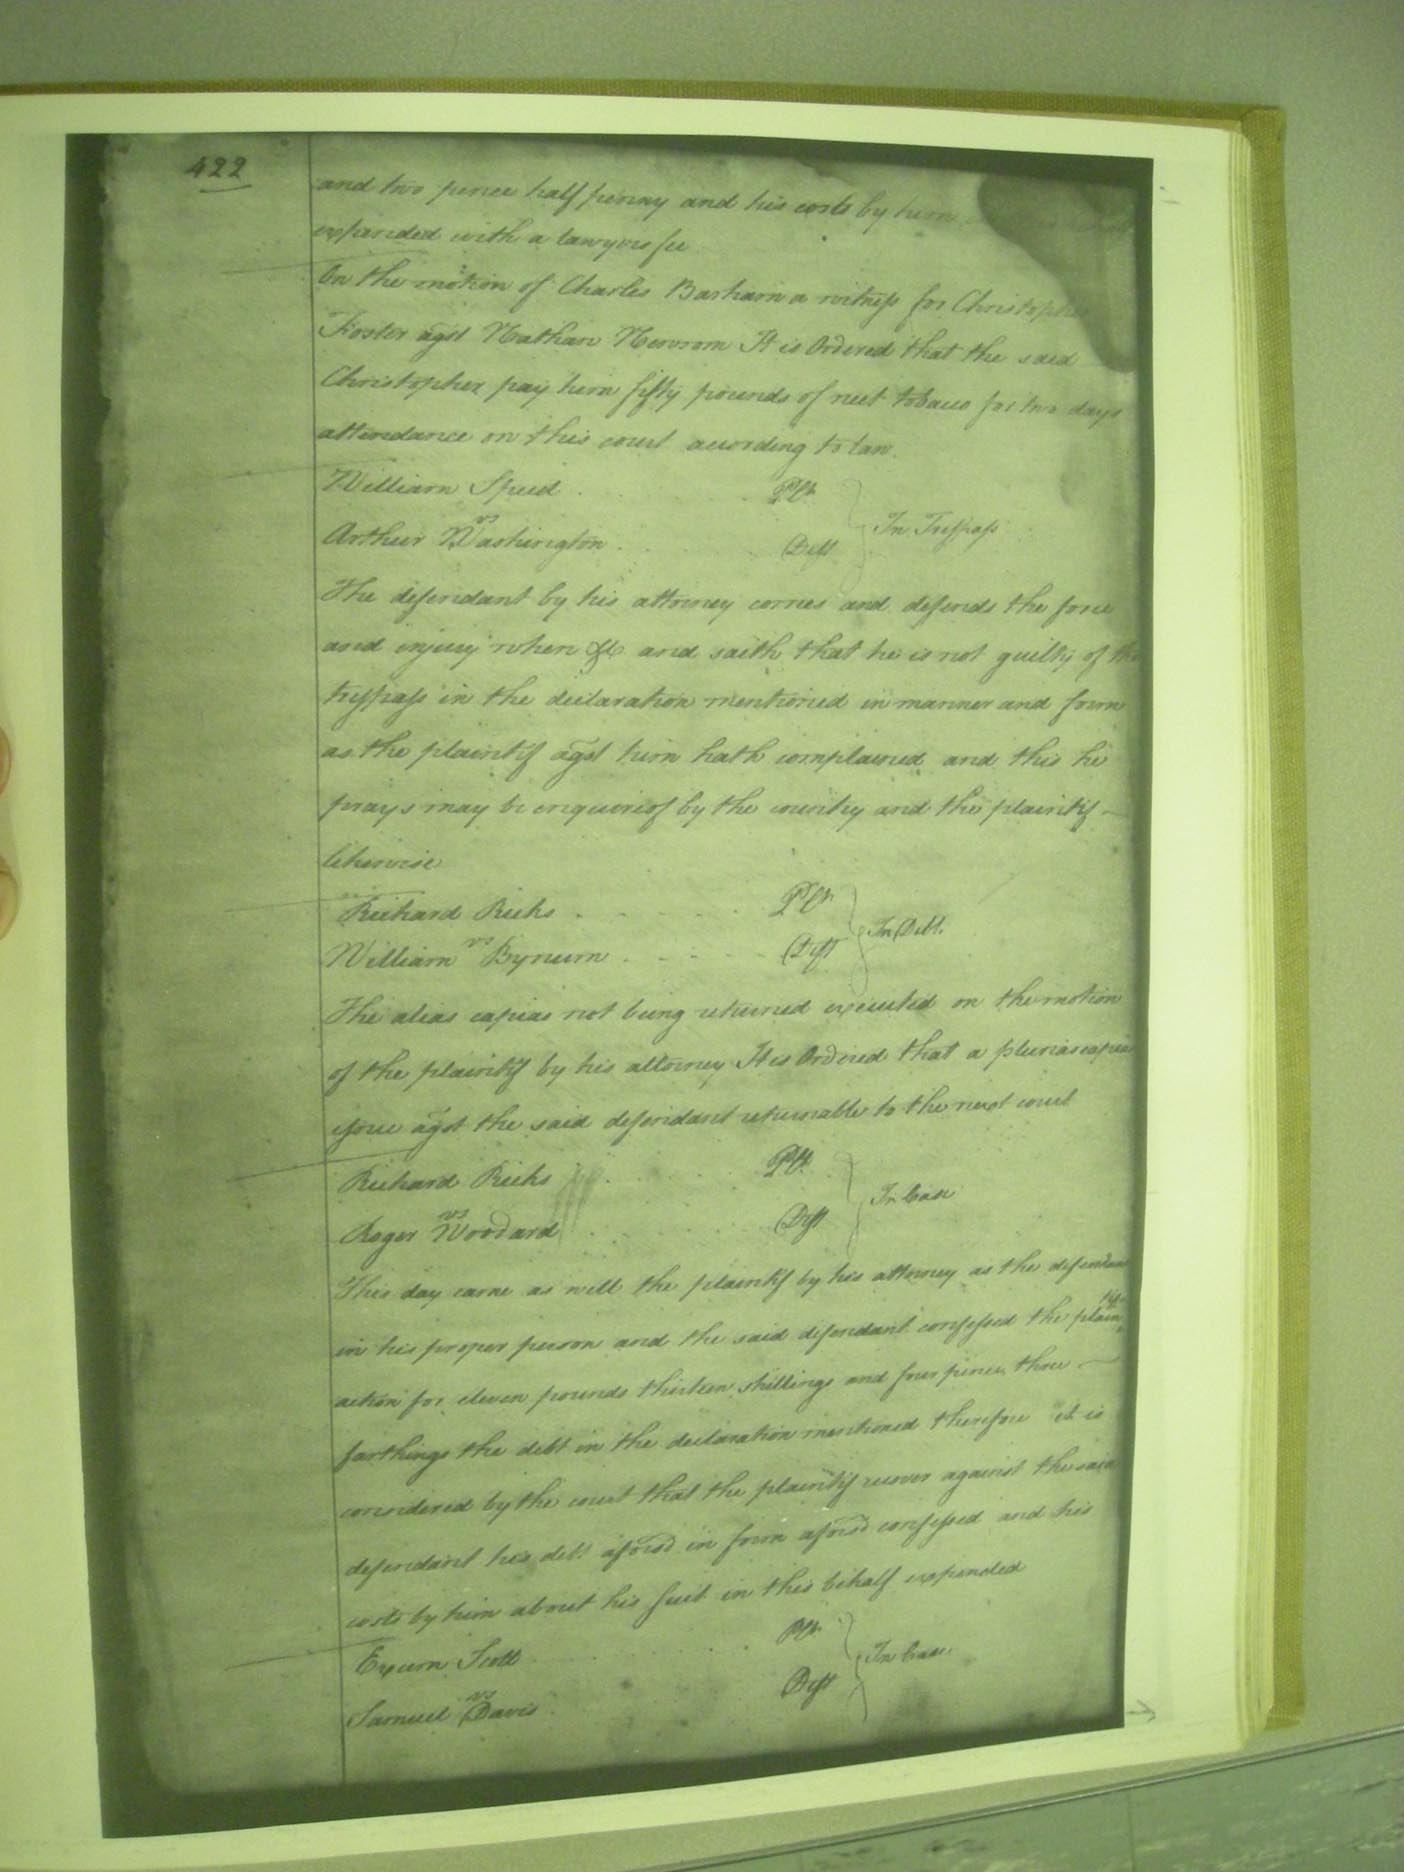 422
and two pence half penny and his costs by him
expended with a lawyers fee
On the motion of Charles Barham a witness for Christopher
Foster agst Nathan Newsom It is Ordered that the said
Christopher pay him fifty pounds of neet tobacco for two days
attendance on this court according to law.
William Speed . . . Plt
vs
Arthur Washington . . . Deft } In Trespass
The defendant by his attorney comes and defends the force
and injury when &c and saith that he is not guilty of the
trespass in the declaration mentioned in manner and form
as the plaintif agst him hath complained and this he
prays may be enquired of by the country and the plaintif —
likewise
Richard Ricks . . . Plt
William vs Bynum . . . Deft } In Debt.
The alias capias not being returned executed on the motion
of the plaintif by his attorney It is Ordered that a plurias capias
issue agst the said defendant returnable to the next court
Richard Ricks . . . Plt
vs
Roger Woodard . . . Deft } In Case
This day came as well the plaintif by his attorney as the defendant
in his proper person and the said defendant confessed the plaintifs
action for eleven pounds thirteen shillings and four pence three —
farthings the debt in the declaration mentioned therefore it is
considered by the court that the plaintif recover against the said
defendant his debt aforsd in form aforsd confessed and his
costs by him about his suit in this behalf expended
Exum Scott . . . Plt
vs
Samuel Davis . . . Deft } In Case